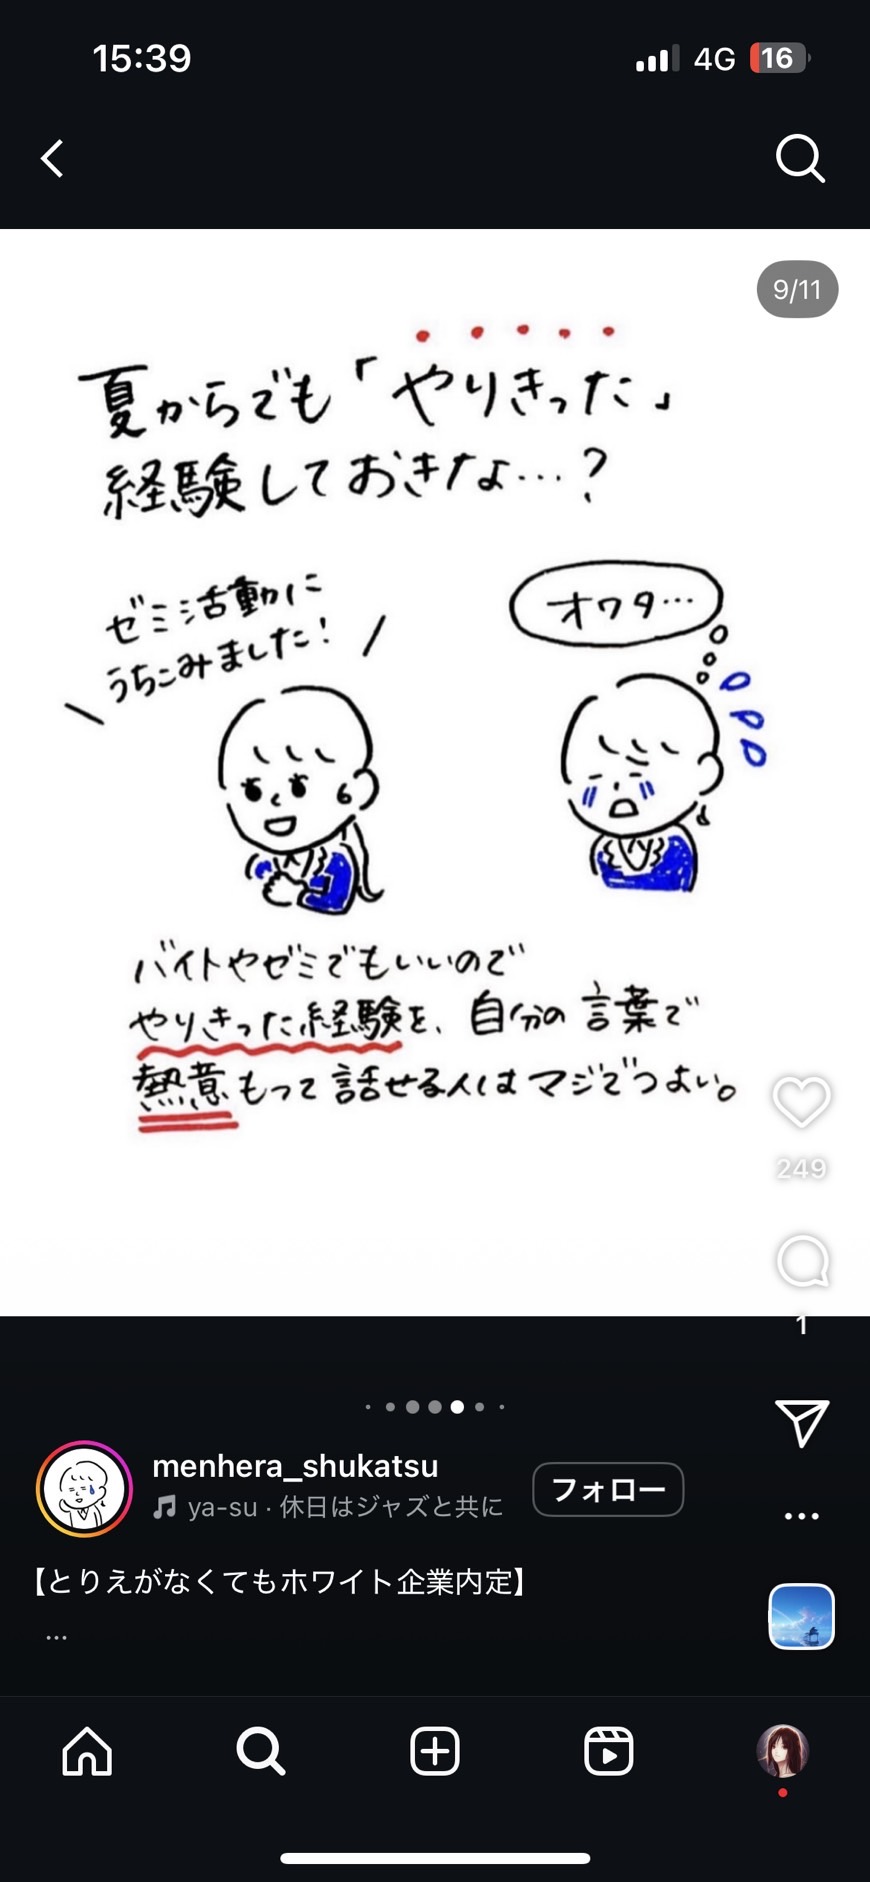 15:39
4G
16
9/11
夏からでも「やりきった」
経験しておきなよ…?
ゼミ活動に
うちこみました!
オワタ…
バイトやゼミでもいいので
やりきった経験を、自分の言葉で
熱意もって話せる人はマジでつよい。
249
1
menhera_shukatsu
ya-su · 休日はジャズと共に
フォロー
【とりえがなくてもホワイト企業内定】
...